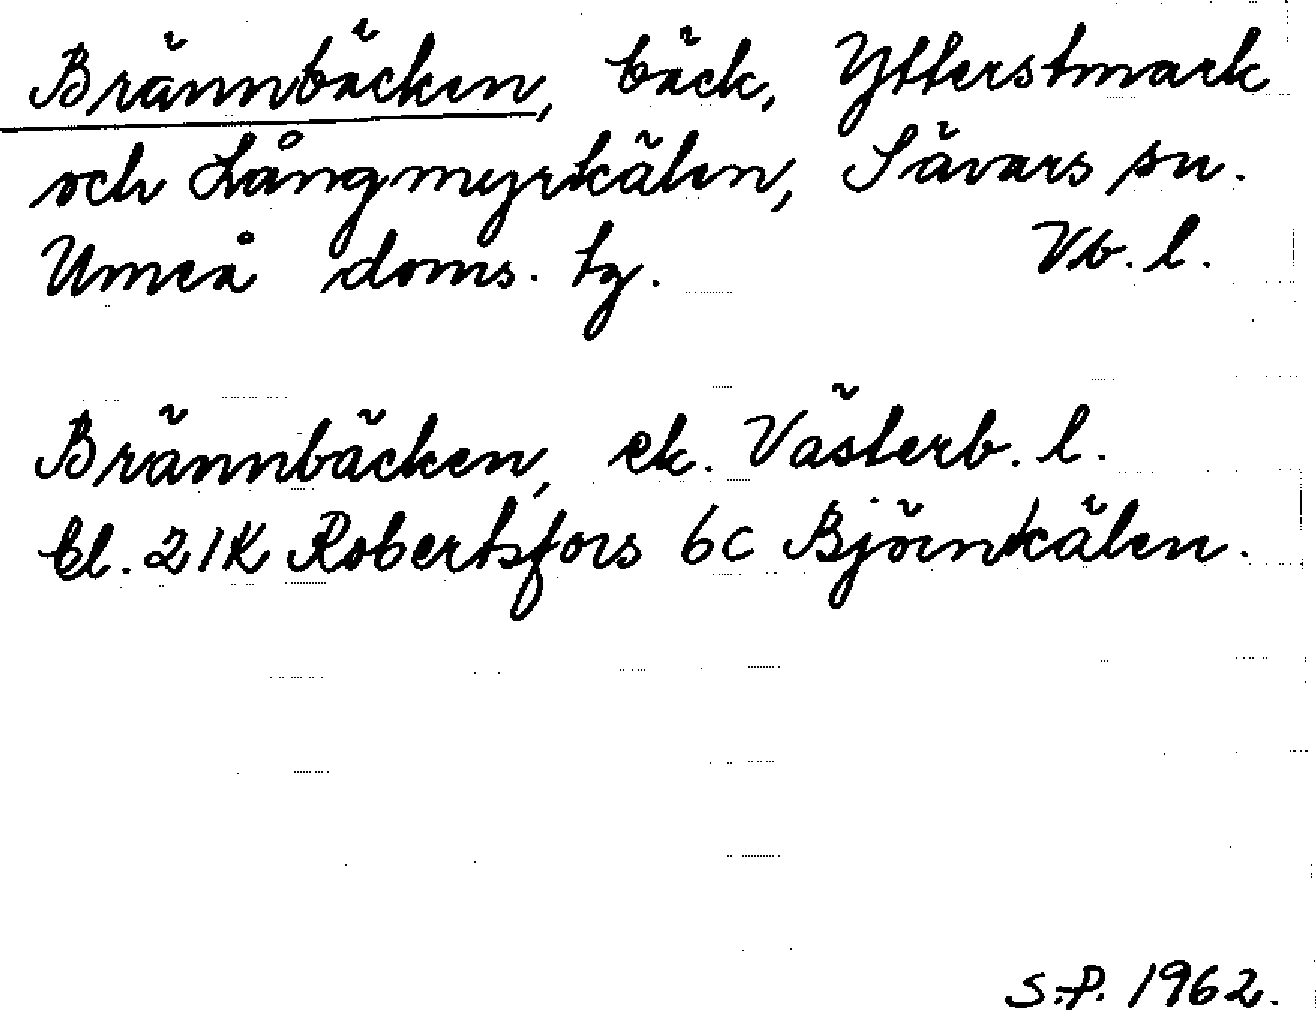 Brännbäcken, bäck, Ytterstmark
och Långmyrkälen, Sävars sn.
Umeå doms. tg. Vb. l.
Brännbäcken, ek. Västerb. l.
Bl. 21K Robertsfors 6c Björnkälen.
S.P. 1962.